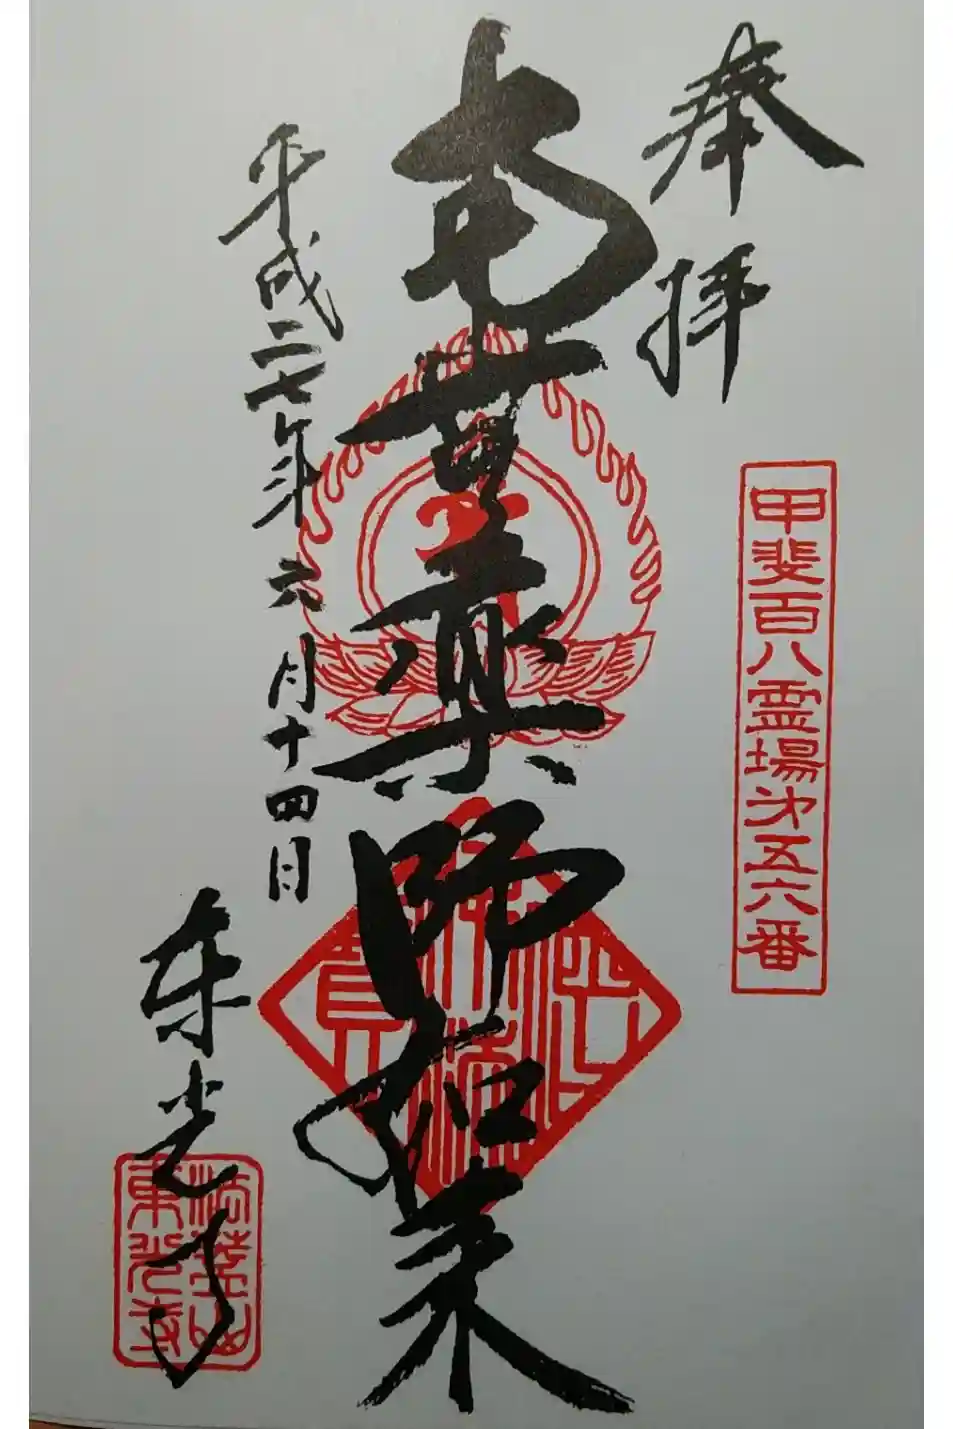 奉拝
甲斐百八霊場㐧五六番
南無薬師如来
平成二七年六月十四日
東光寺
法蓋山
東光寺